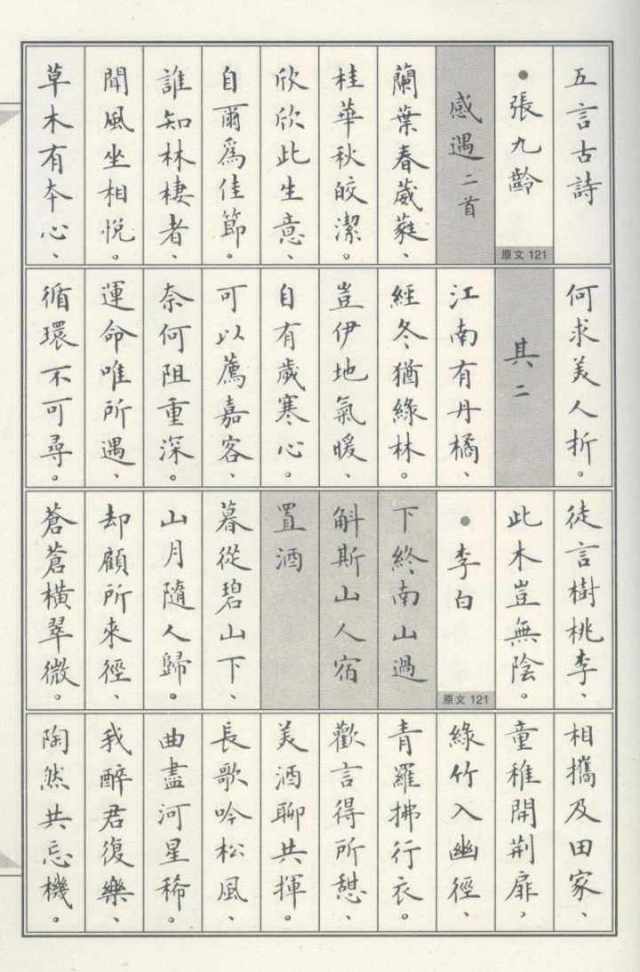 五言古詩
●張九齡
原文 121
感遇二首
蘭葉春葳蕤、
桂華秋皎潔。
欣欣此生意、
自爾爲佳節。
誰知林棲者、
聞風坐相悅。
草木有本心、
何求美人折。
其二
江南有丹橘、
經冬猶綠林。
豈伊地氣暖、
自有歲寒心。
可以薦嘉客、
奈何阻重深。
運命唯所遇、
循環不可尋。
徒言樹桃李、
此木豈無陰。
●李白
原文 121
下終南山過
斛斯山人宿
置酒
暮從碧山下、
山月隨人歸。
却顧所來徑、
蒼蒼橫翠微。
相攜及田家、
童稚開荆扉、
綠竹入幽徑、
青羅拂行衣。
歡言得所憇、
美酒聊共揮。
長歌吟松風、
曲盡河星稀。
我醉君復樂、
陶然共忘機。